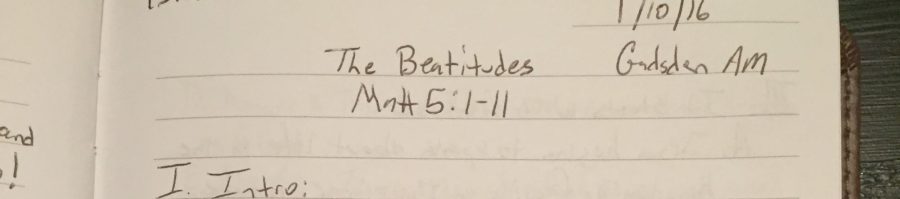 1/10/16
The Beatitudes Gadsden AM
Matt 5:1-11
I. Intro:
and
!